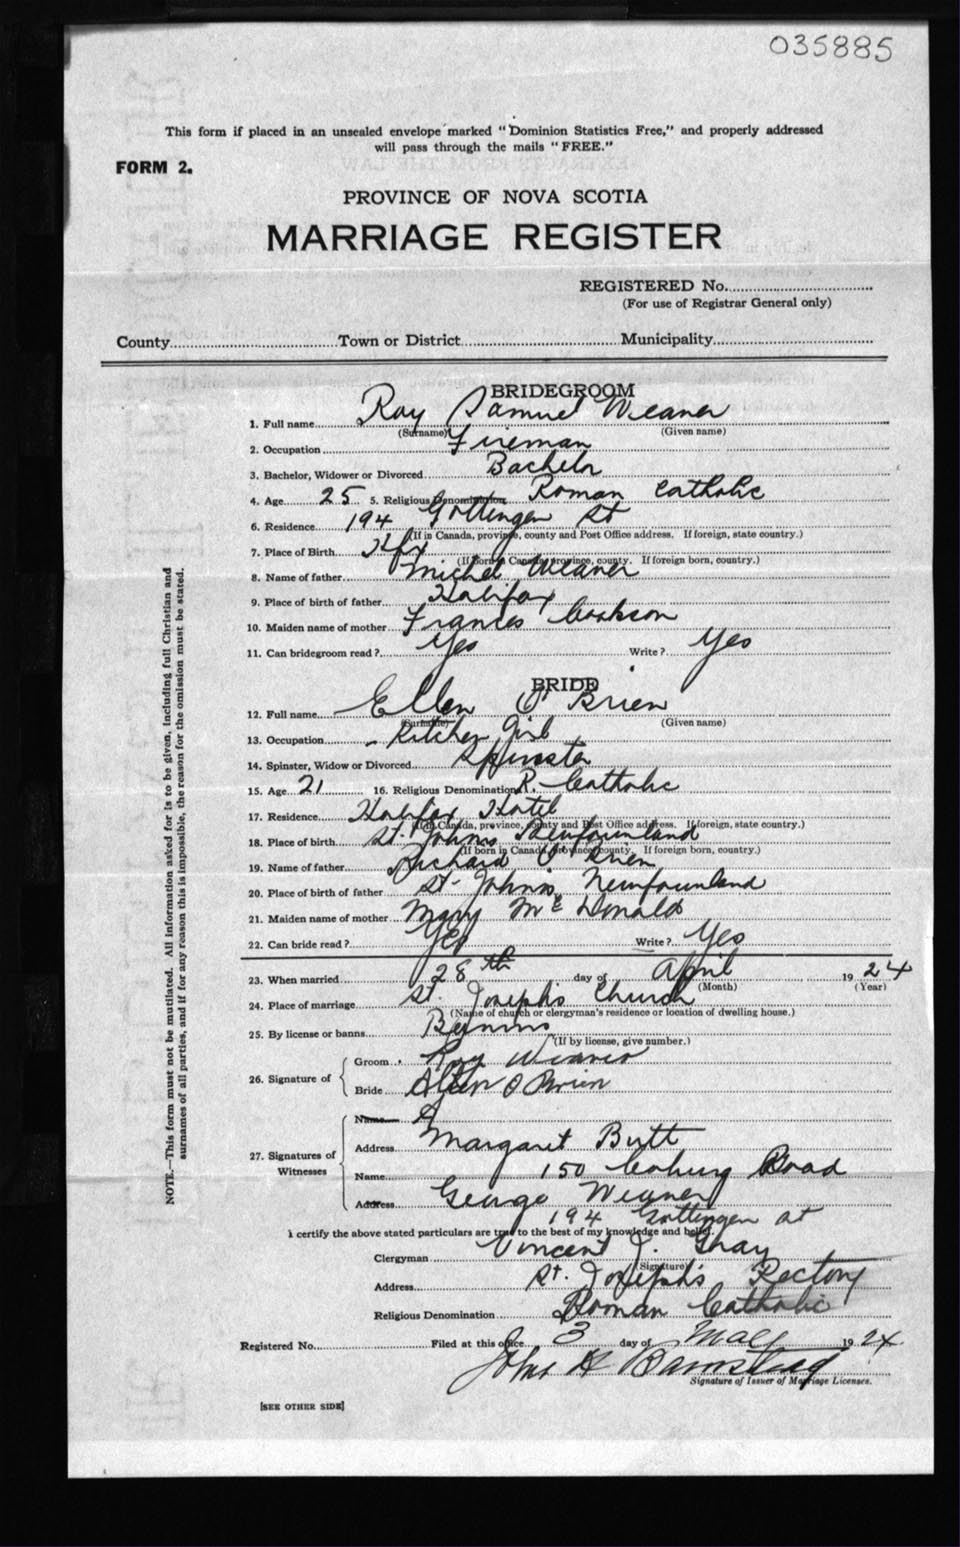 035885
This form if placed in an unsealed envelope marked "Dominion Statistics Free," and properly addressed
will pass through the mails "FREE."
FORM 2.
PROVINCE OF NOVA SCOTIA
MARRIAGE REGISTER
REGISTERED No.
(For use of Registrar General only)
County Town or District Municipality
BRIDEGROOM
1. Full name Roy Samuel Weaner
(Surname) (Given name)
2. Occupation Fireman
3. Bachelor, Widower or Divorced Bachelor
4. Age 25 5. Religious Denomination Roman Catholic
6. Residence 194 Gottingen St
(If in Canada, province, county and Post Office address. If foreign, state country.)
7. Place of Birth Hfx
(If Born in Canada, province, county. If foreign born, country.)
8. Name of father Michel Weaner
9. Place of birth of father Halifax
10. Maiden name of mother Frances
11. Can bridegroom read? Yes Write? Yes
BRIDE
12. Full name Ellen O'Brien
(Surname) (Given name)
13. Occupation Kitchen Girl
14. Spinster, Widow or Divorced Spinster
15. Age 21 16. Religious Denomination R. Catholic
17. Residence Halifax Hotel
(If in Canada, province, county and Post Office address. If foreign, state country.)
18. Place of birth St. Johns Newfounland
(If born in Canada, province, county. If foreign born, country.)
19. Name of father Richard O'Brien
20. Place of birth of father St. John's, Newfounland
21. Maiden name of mother Mary Mc Donald
22. Can bride read? Yes Write? Yes
23. When married 28th day of April 1924
(Month) (Year)
24. Place of marriage St. Joseph's Church
(Name of church or clergyman's residence or location of dwelling house.)
25. By license or banns
(If by license, give number.)
26. Signature of Groom Roy Weaner
Bride Ellen O Brien
27. Signatures of Witnesses
Name
Address Margaret Butt
Name 150 Coburg Road
Address George Weaner
194 Gottingen St
I certify the above stated particulars are true to the best of my knowledge and belief.
Clergyman Vincent J. Gray
(Signature)
Address St. Joseph's Rectory
Religious Denomination Roman Catholic
Registered No. Filed at this office 3 day of May 1924
John H Barnstead
Signature of Issuer of Marriage Licenses.
[SEE OTHER SIDE]
NOTE.—This form must not be mutilated. All information asked for is to be given, including full Christian and
surnames of all parties, and if for any reason this is impossible, the reason for the omission must be stated.